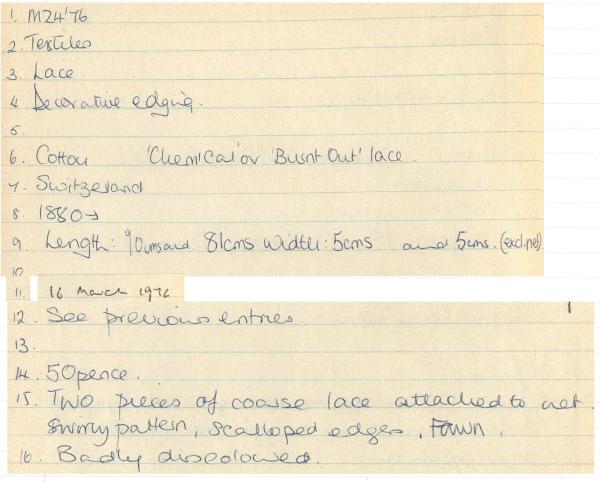 1. M24'76
2. Textiles
3. Lace
4 Decorative edging.
5.
6. Cotton 'Chemical' or 'Burnt Out' lace.
7. Switzerland
8. 1880→
9. Length: 90cms and 81cms width: 5cms and 5cms. (excl. net)
10
11. 16 March 1976
12. See previous entries
13.
14. 50pence.
15. Two pieces of coarse lace attached to net.
Swirly pattern, scalloped edges. Fawn.
16. Badly discoloured.